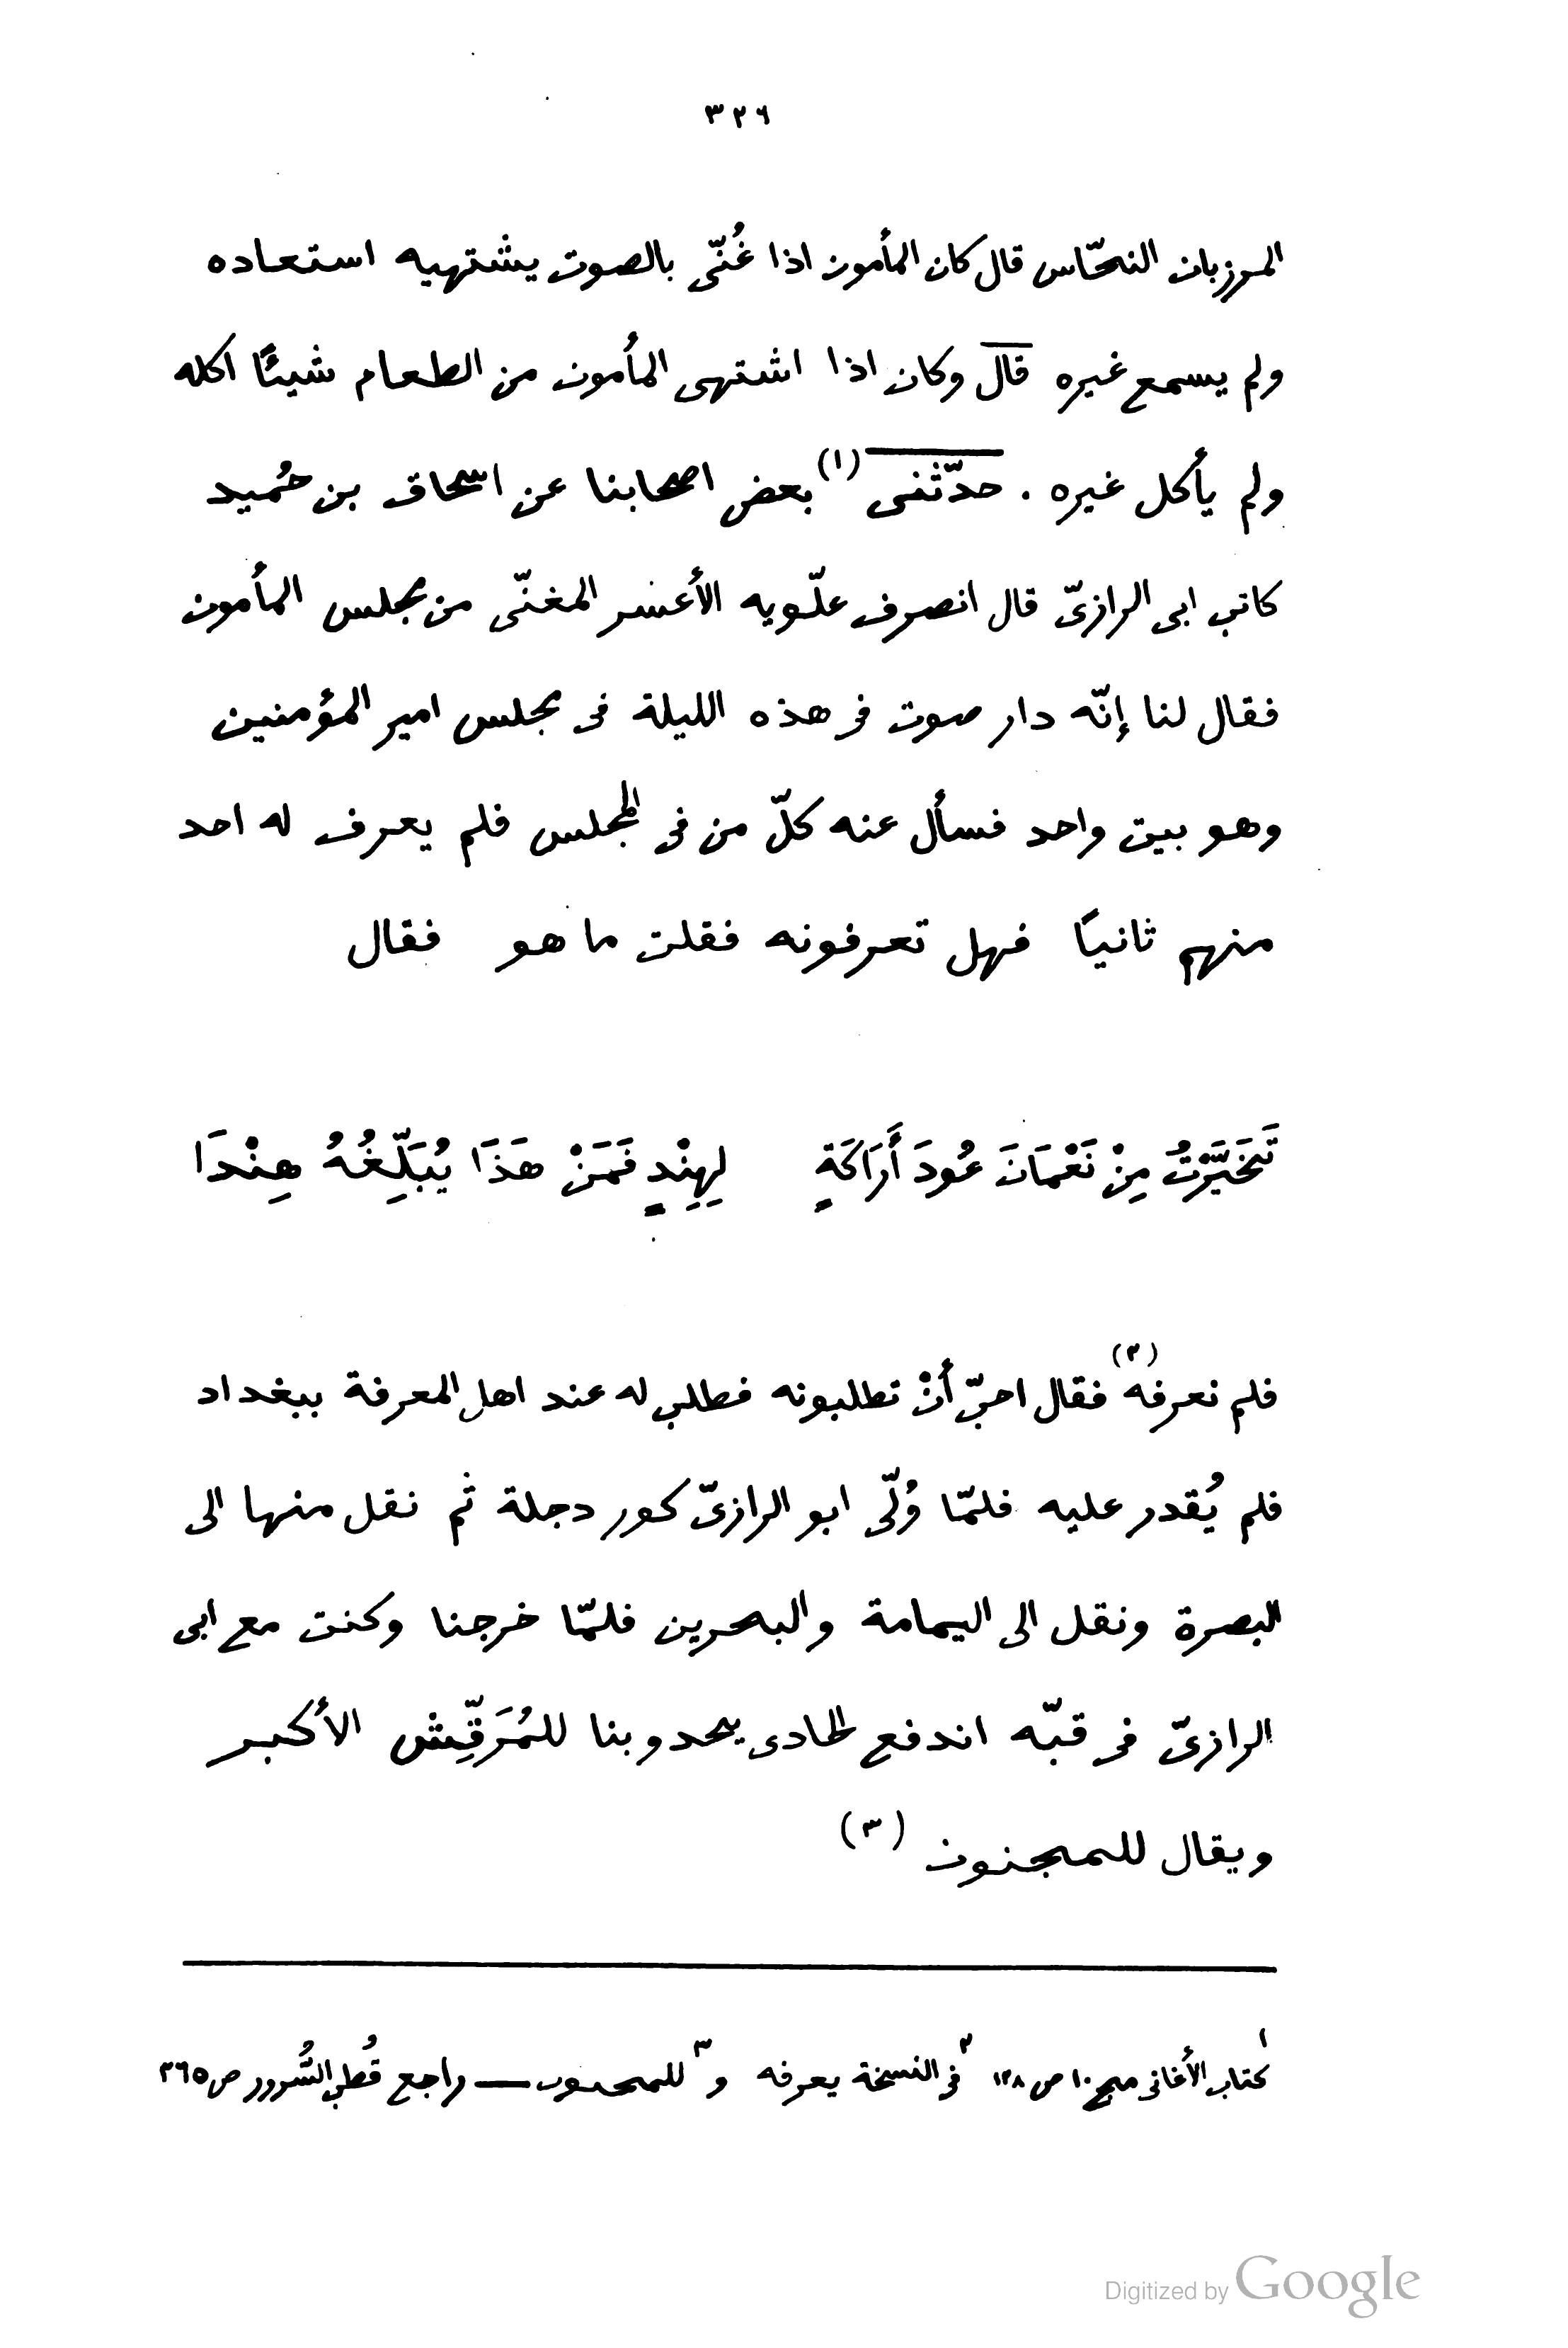 ٣٢٦
المرزبان النحّاس قال كان المأمون اذا غُنّى بالصوت يشتهيه استعاده
ولم يسمع غيره قال وكان اذا اشتهى المأمون من الطعام شيئًا اكله
ولم يأكل غيره . حدّثنى (١) بعض اصحابنا عن اسحاق بن حُميد
كاتب ابى الرازىّ قال انصرف علّويه الأعسر المغنّى من مجلس المأمون
فقال لنا إنّه دار صوت فى هذه الليلة فى مجلس امير المؤمنين
وهو بيت واحد فسأل عنه كلّ من فى المجلس فلم يعرف له احد
منهم ثانيًا فهل تعرفونه فقلت ما هو فقال
تَخَيَّرْتُ مِنْ نَعْمَانَ عُودَ أَرَاكَةٍ لِهِنْدٍ فَمَنْ هَذَا يُبَلِّغُهُ هِنْدَا
فلم نعرفه (٢) فقال احبّ أنْ تطلبونه فطلب له عند اهل المعرفة ببغداد
فلم يُقدر عليه فلمّا وُلّى ابو الرازىّ كور دجلة ثم نقل منها الى
البصرة ونقل الى اليمامة والبحرين فلمّا خرجنا وكنت مع ابى
الرازىّ فى قبّه اندفع الحادى يحدو بنا للمُرَقِّش الأكبر
ويقال للمجنون (٣)
١ كتاب الأغانى مج ١٠ ص ١٢٨ ٢ فى النسخة يعرفه و ٣ للمحںوں — راجع قُطب السُّرور ص ٣٦٥
Digitized by Google